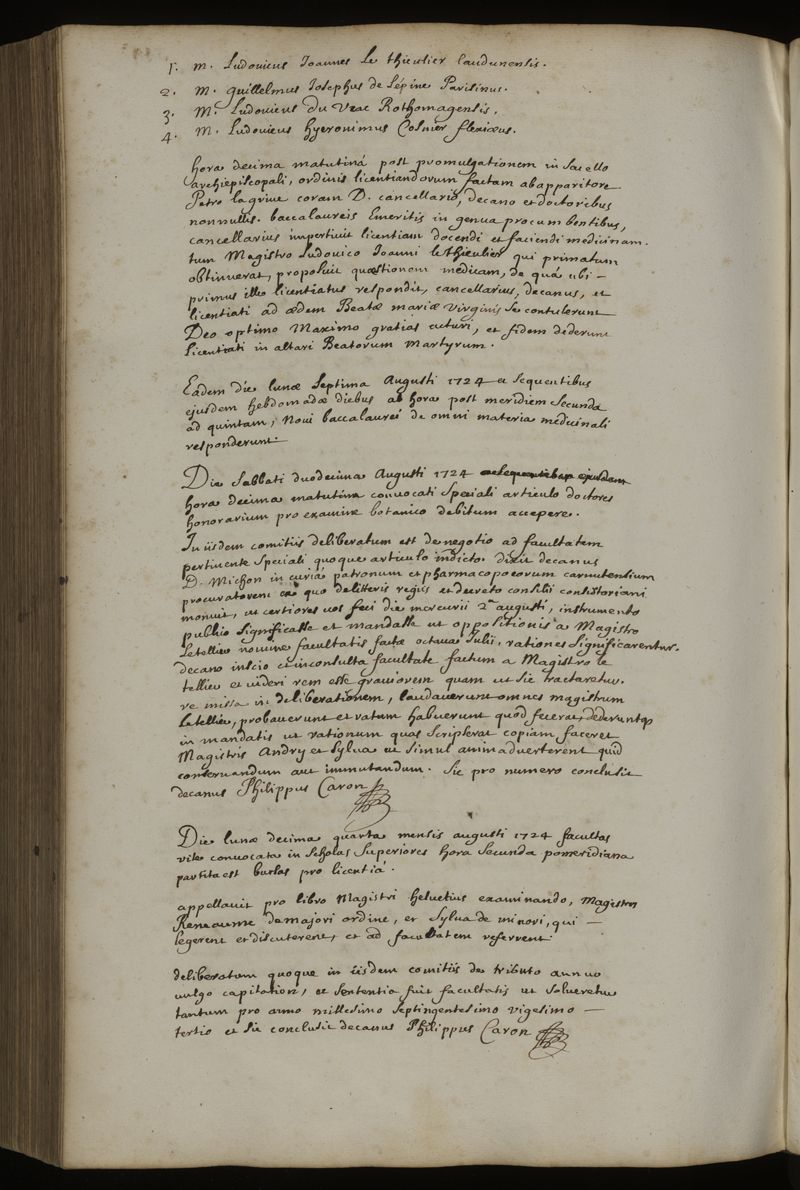 1. M. Ludovicus Joannes Le thieulier Laudunensis.
2. M. guillelmus Josephus de Lépine Parisinus.
3. M. Ludovicus Du Vrac Rothomagensis.
4. M. Ludovicus hyeronimus Cosnier flexiæus.
hora decima matutinâ post promulgationem in sacello
archiepiscopali, ordinis licentiandorum factam ab apparitore
Petro lagrive coram D. cancellario, decano et doctoribus
nonnullis. baccalaureis Emeritis in genua procumbentibus,
cancellarius impertivit licentiam docendi et faciendi medicinam.
tum Magistro Ludovico Joanni le thieulier qui primatum
obtinuerat, proposuit quæstionem medicam, de quâ ubi –
primus ille licentiatus respondit, cancellarius, decanus, et
licentiati ad ædem Beatæ mariæ virginis se contulerunt
Deo optimo Maximo gratias acturi, et fidem dederunt
licentiati in altari Beatorum Martyrum.
Eadem die lunæ septima Augusti 1724 et sequentibus
ejusdem hebdomadæ diebus ab hora post meridiem secunda
ad quintam, Novi baccalaurei de omni materia medicinali
responderunt.
Die sabbati duodecima Augusti 1724
hora decima matutina convocati speciali articulo doctores
honorarium pro examine botanico debitum accepere.
In iisdem comitiis deliberatum est de negotio ad facultatem
pertinente speciali quoque articulo indicto. dixit decanus
D. Michon in curiâ patronum et pharmacopœorum carnutensium
procuratorem quo de litteris regiis et decreto consilii consistoriani
monuit, ut certiores vos feci die mercurii 2ª augusti, instrumento
publico significasse et mandasse ut oppositionis a Magistro
Letellier nomine facultatis factæ octava Julii, rationes significarentur.
decano inscio et inconsulta facultate factum a Magistro le
tellier et videri rem esse graviorem quam ut sic tractaretur.
re missa in deliberationem, laudaverunt omnes magistrum
letellier, probaverunt et ratum habuerunt quod fecerat, dederuntq
in mandatis ut rationum quas scripserat copiam faceret
Magistris Andry et Sylva ut simul animadverterent quid
conservandum aut immutandum. Sic pro numero conclusit
decanus Philippus Caron
Die lunæ decima quarta mensis augusti 1724 facultas
rite convocata in scholas superiores hora secunda pomeridiana
partita est bursas pro licentiâ.
appellavit pro libro Magistri helvetius examinando, Magistros
Reneaume de majori ordine, et Sylva de minori, qui –
legerent et discuterent, et ad facultatem referrent.
deliberatum quoque in iisdem comitiis de tributo annuo
vulgo capitation, et sententia fuit facultatis ut solveretur
tantum pro anno millesimo septingentesimo vigesimo –
tertio et sic conclusit decanus Philippus Caron